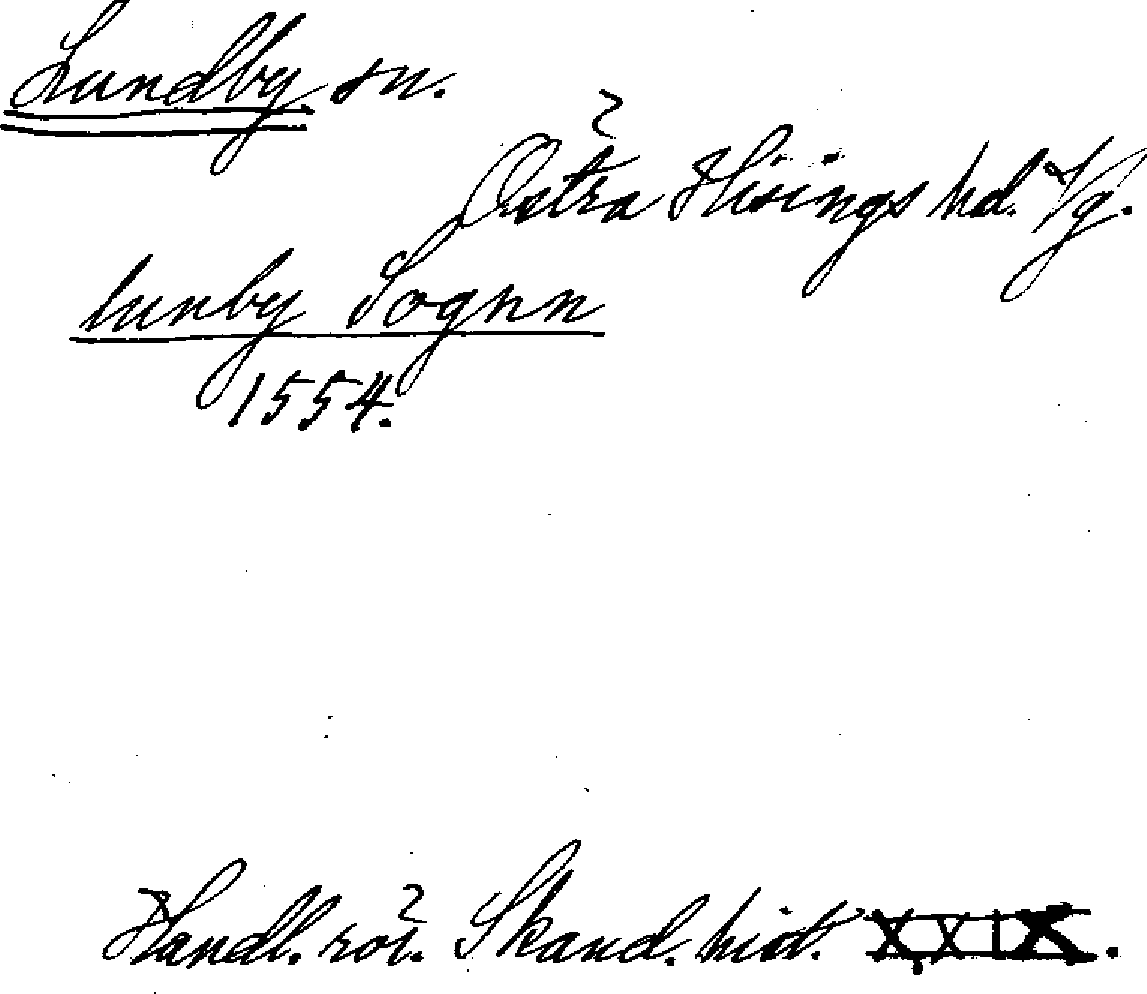 Lundby sn.
Östra Hisings hd. Vg.
lunby Sognn
1554.
Handl. rör. Skand. hist. XXIX.